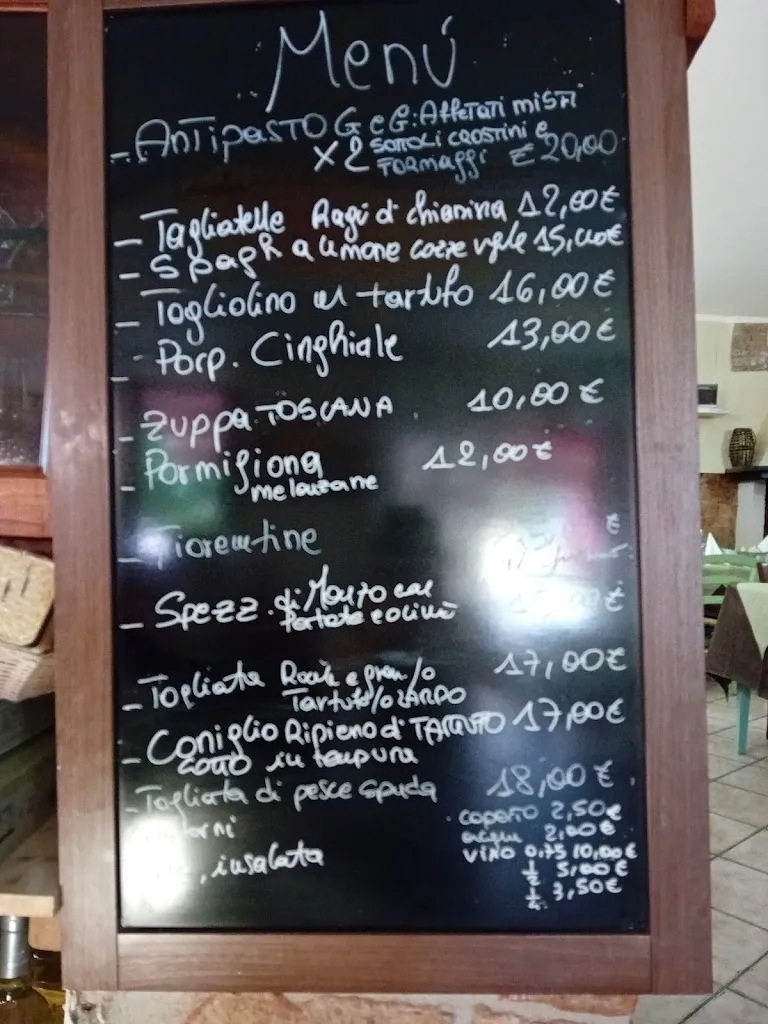 Menú
- ANTipasTO G e G: Affettati misti
x2 SOTTOLI CROSTINI e
FORMAGGI € 20,00
- Tagliatelle Ragù di chianina 12,00€
- Spagh a limone cozze vgle 15,00€
- Tagliolino al tartufo 16,00€
- Porp. Cinghiale 13,00€
- Zuppa TOSCANA 10,00 €
- Parmigiana 12,00€
melanzane
- Fiorentine €
- Spezz. di Manzo con €
Patate e olive
- Tagliata Rucola e gran/o 17,00€
Tartufo/o LARDO
- Coniglio Ripieno di TARTUFO 17,00€
COTTO in tempura
- Tagliata di pesce spada 18,00€
coperto 2,50€
acqua 2,00€
vino 0,75 10,00€
insalata
1/2 5,00€
1/4 3,50€